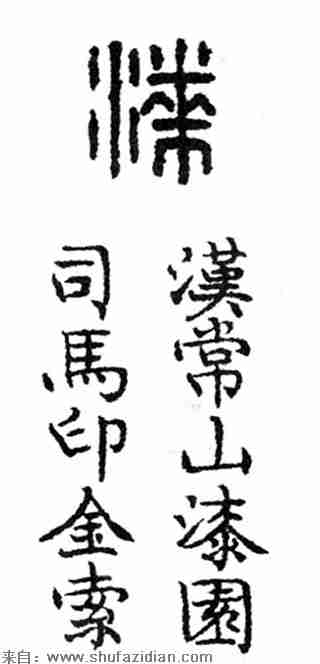 漆
漢常山漆園
司馬印金索
来自：www.shufazidian.com